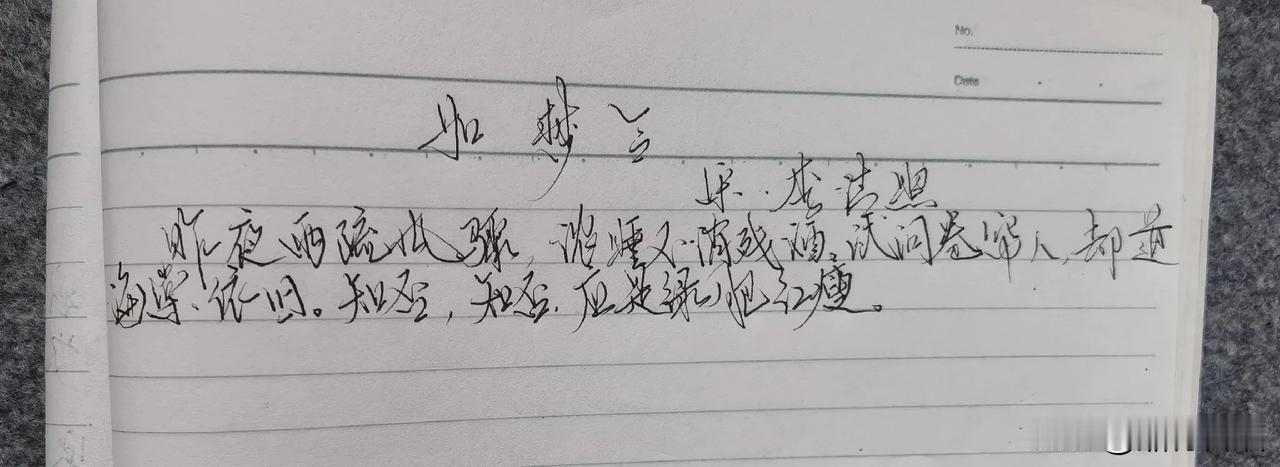 No.
Date
如梦令
宋·李清照
昨夜雨疏风骤，浓睡不消残酒。试问卷帘人，却道
海棠依旧。知否，知否，应是绿肥红瘦。